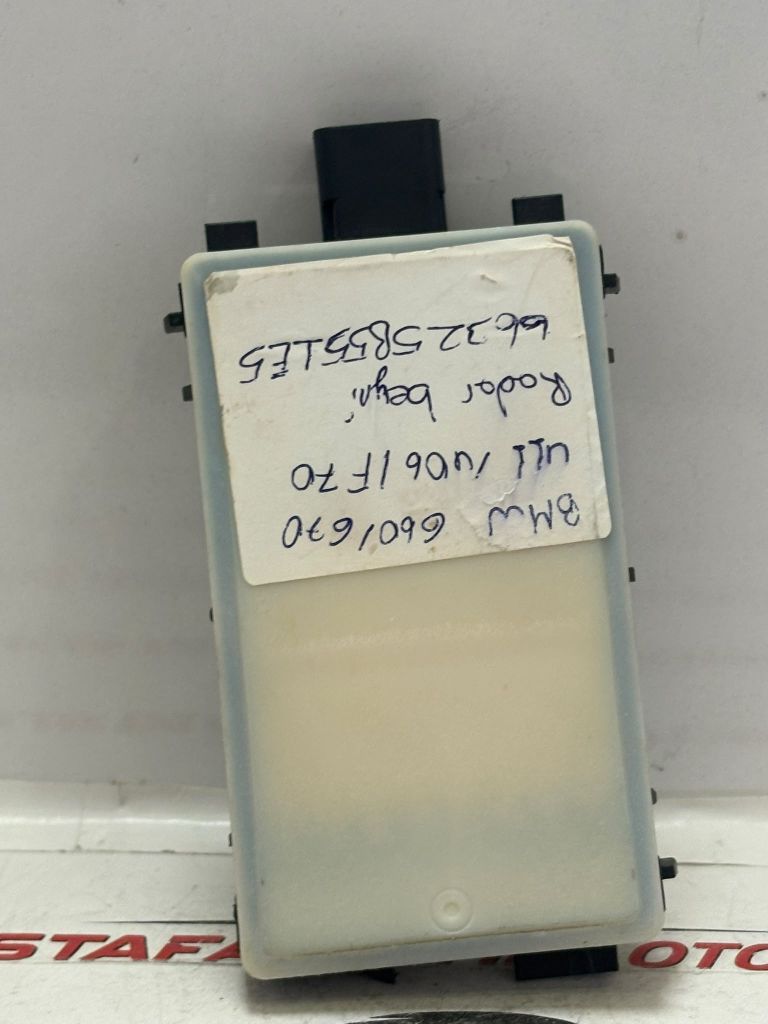 BMW G60/G70
U11/U06/F70
Radar beyni
66325B551E5
STAFA OTO